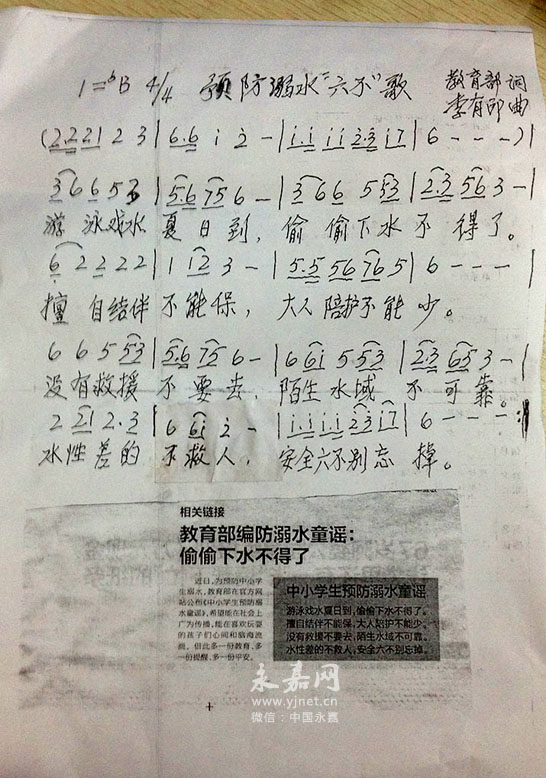 1=♭B 4/4 预防溺水“六不”歌 教育部 词
李有郎 曲
(2.2 2 1 2 3 | 6.6 i 2 - | i.i i i 2 3 i 7 | 6 - - - )|
3 6 6 5 3 | 5.6 7 5 6 - | 3 6 6 5 5 3 | 2.3 5 6 3 - |
游泳戏水夏日到，偷偷下水不得了。
6 2 2 2 2 | 1 1 2 3 - | 5.5 5 6 7 6 5 | 6 - - - |
擅自结伴不能保，大人陪护不能少。
6 6 5 5 3 | 5.6 7 5 6 - | 6 6 i 5 5 3 | 2.3 6 5 3 - |
没有救援不要去，陌生水域不可靠。
2 2 1 2.3 | 6 6 i 2 - | i.i i i 2 3 i 7 | 6 - - - :|
水性差的不救人，安全六不别忘掉。
相关链接
教育部编防溺水童谣：
偷偷下水不得了
近日，为预防中小学
生溺水，教育部在官方网
站公布《中小学生预防溺
水童谣》，希望能在社会上
广为传播，能在喜欢玩耍
的孩子们心间和脑海流
淌。但此多一份教育、多
一份提醒、多一份平安。
中小学生预防溺水童谣
游泳戏水夏日到，偷偷下水不得了。
擅自结伴不能保，大人陪护不能少。
没有救援不要去，陌生水域不可靠。
水性差的不救人，安全六不别忘掉。
永嘉网
www.yjnet.cn
微信：中国永嘉